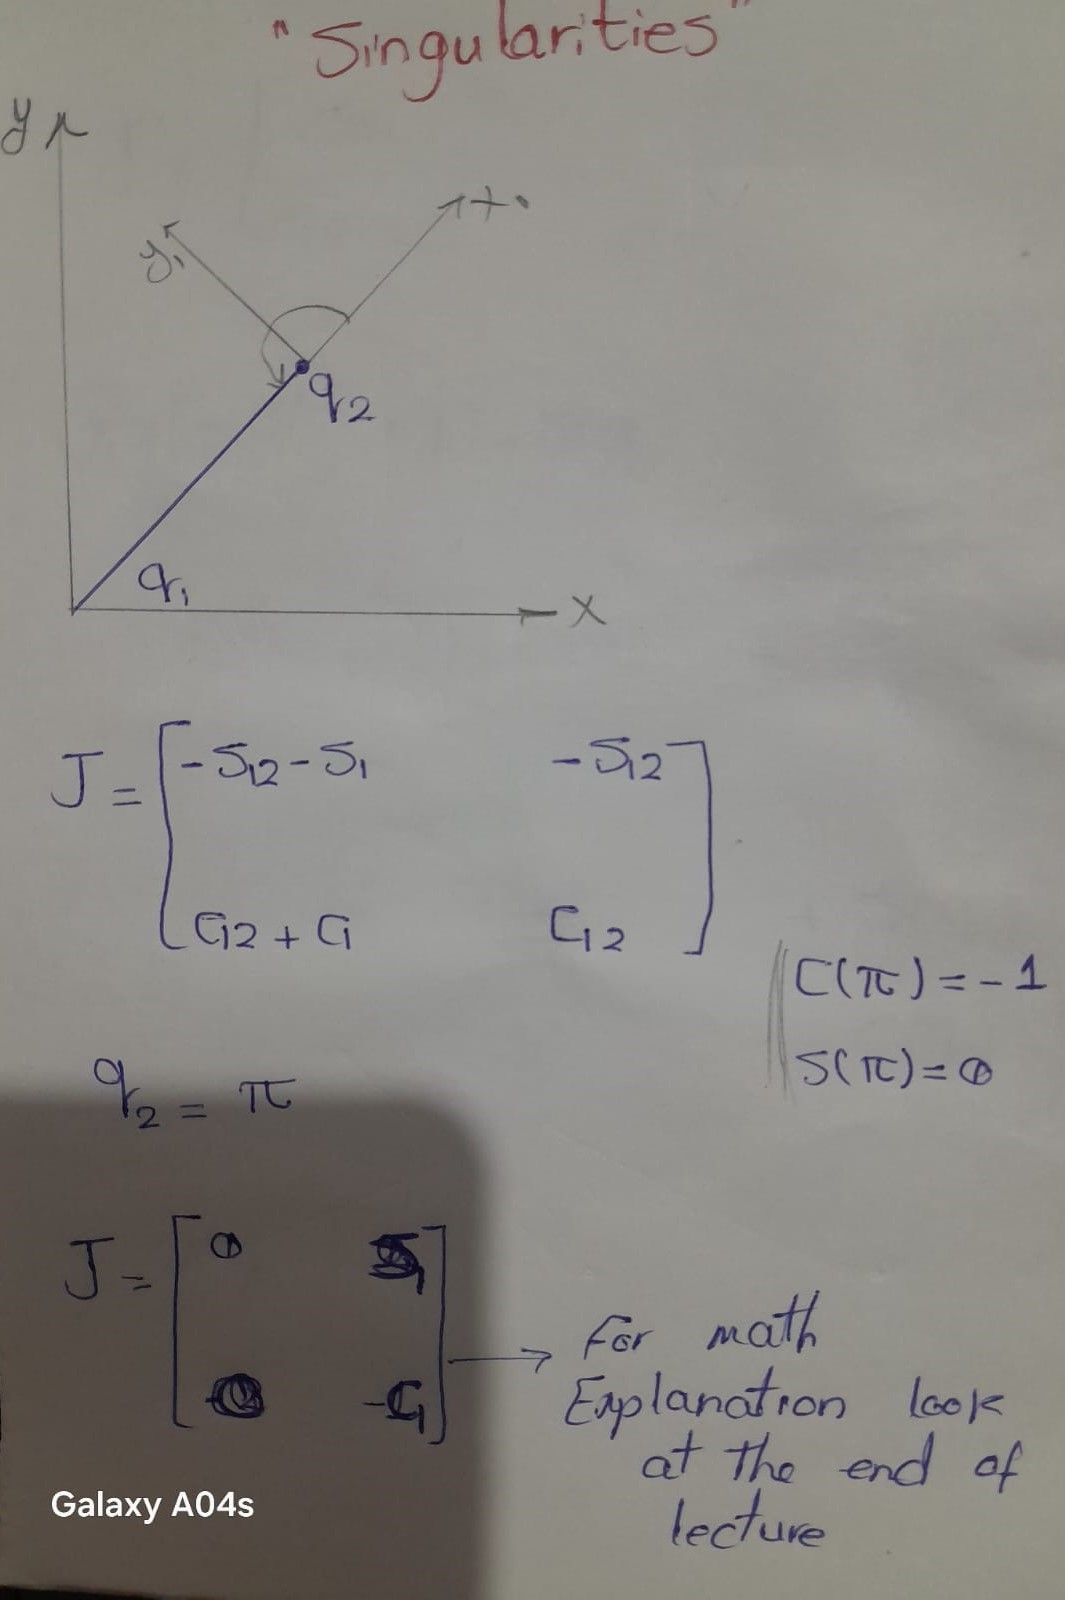 "Singularities"
y
x₁
y₁
q₂
q₁
x
J = [ -S₁₂ - S₁   -S₁₂
C₁₂ + C₁   C₁₂ ]
C(π) = -1
S(π) = 0
q₂ = π
J = [ 0   S₁
0   -C₁ ]
→ For math
Explanation look
at the end of
lecture
Galaxy A04s